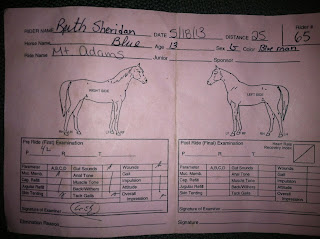 RIDER NAME Ruth Sheridan DATE 5/18/13 DISTANCE 25 Rider #
Horse Name Blue Age 13 Sex G Color Blue roan 65
Ride Name Mt Adams Junior Sponsor
RIGHT SIDE LEFT SIDE
Pre Ride (First) Examination Post Ride (Final) Examination
P 42 R T P R T Heart Rate Recovery Index
Parameter A,B,C,D Gut Sounds Wounds Parameter A,B,C,D Gut Sounds Wounds
Muc. Memb. Anal Tone Gait Muc. Memb. Anal Tone Gait
Cap. Refill Muscle Tone Impulsion Cap. Refill Muscle Tone Impulsion
Jugular Refill Back/Withers Attitude Jugular Refill Back/Withers Attitude
Skin Tenting Tack Galls Overall Impression Skin Tenting Tack Galls Overall Impression
Signature of Examiner Signature of Examiner
Examination Notes